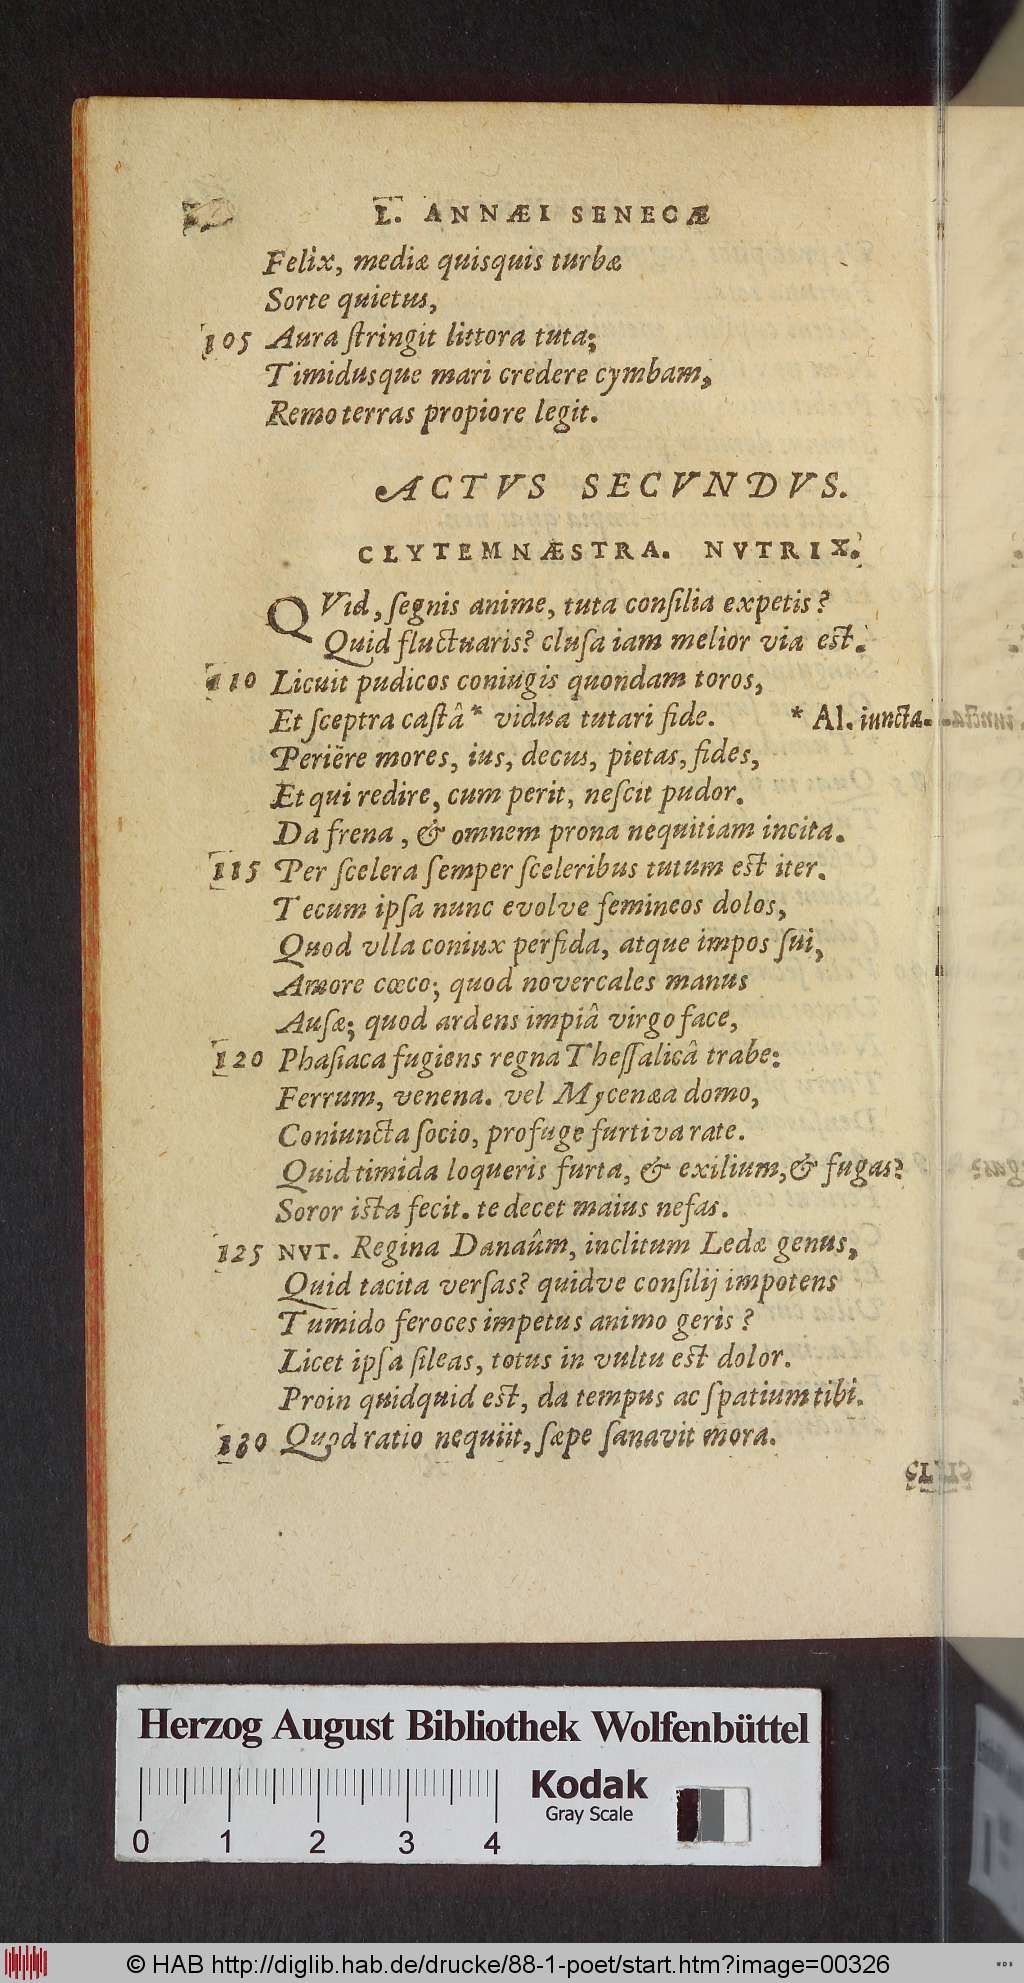 L. ANNÆI SENECÆ
Felix, mediæ quisquis turbæ
Sorte quietus,
105 Aura ſtringit littora tuta;
Timidusque mari credere cymbam,
Remo terras propiore legit.
ACTVS SECVNDVS.
CLYTEMNÆSTRA. NVTRIX.
QVid, ſegnis anime, tuta conſilia expetis?
Quid fluctuaris? cluſa iam melior via eſt.
110 Licuit pudicos coniugis quondam toros,
Et ſceptra caſtâ* vidua tutari fide. * Al. iuncta.
Periëre mores, ius, decus, pietas, fides,
Et qui redire, cum perit, neſcit pudor.
Da frena, & omnem prona nequitiam incita.
115 Per ſcelera ſemper ſceleribus tutum eſt iter.
Tecum ipſa nunc evolve femineos dolos,
Quod vlla coniux perfida, atque impos ſui,
Amore cœco; quod novercales manus
Auſæ; quod ardens impiâ virgo face,
120 Phaſiaca fugiens regna Theſſalicâ trabe:
Ferrum, venena. vel Mycenæa domo,
Coniuncta ſocio, profuge furtiva rate.
Quid timida loqueris furta, & exilium, & fugas?
Soror iſta fecit. te decet maius nefas.
125 NVT. Regina Danaûm, inclitum Ledæ genus,
Quid tacita verſas? quidve conſilij impotens
Tumido feroces impetus animo geris?
Licet ipſa ſileas, totus in vultu eſt dolor.
Proin quidquid eſt, da tempus ac ſpatium tibi.
130 Quod ratio nequiit, ſæpe ſanavit mora.
Herzog August Bibliothek Wolfenbüttel
Kodak
Gray Scale
0 1 2 3 4
© HAB http://diglib.hab.de/drucke/88-1-poet/start.htm?image=00326